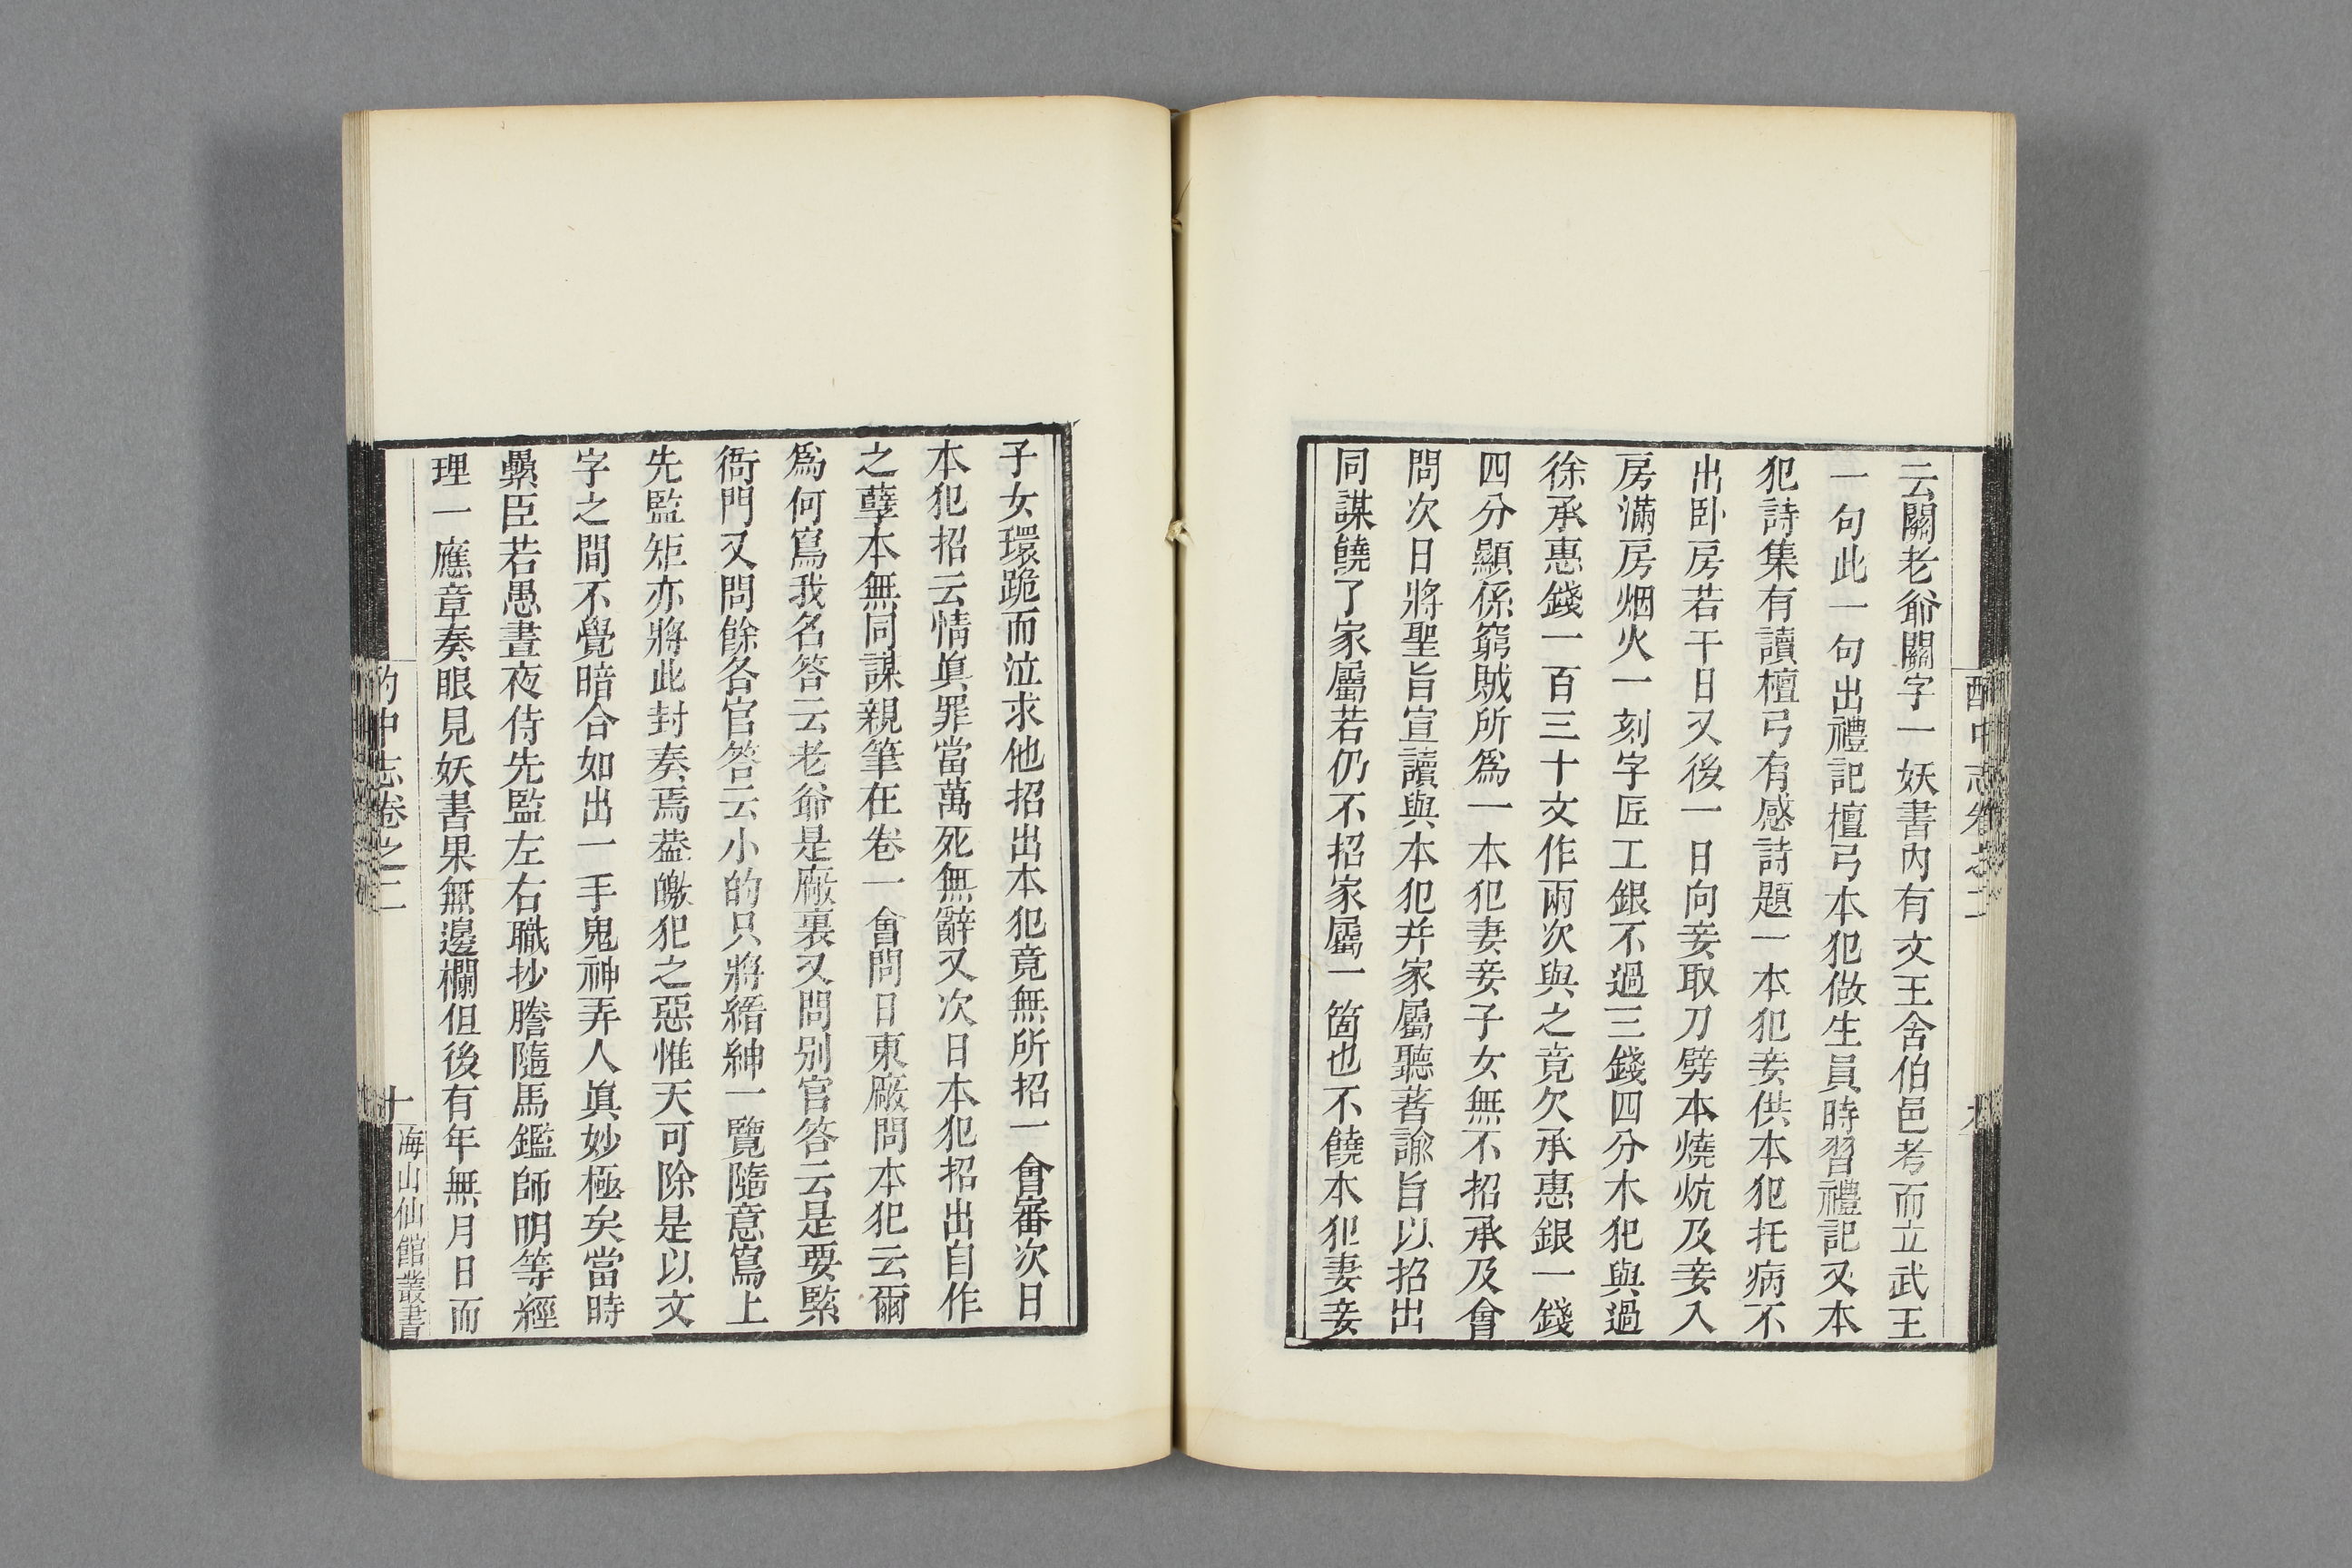 云關老爺關字一妖書內有文王舍伯邑考而立武王
一句此一句出禮記檀弓本犯做生員時習禮記又本
犯詩集有讀檀弓有感詩題一本犯妾供本犯托病不
出卧房若干日又後一日向妾取刀劈本燒炕及妾入
房滿房烟火一刻字匠工銀不過三錢四分木犯與過
徐承惠錢一百三十文作兩次與之竟欠承惠銀一錢
四分顯係窮賊所爲一本犯妻妾子女無不招承及會
問次日將聖旨宣讀與本犯并家屬聽著諭旨以招出
同謀饒了家屬若仍不招家屬一箇也不饒本犯妻妾
子女環跪而泣求他招出本犯竟無所招一會審次日
本犯招云情眞罪當萬死無辭又次日本犯招出自作
之孽本無同謀親筆在卷一會問日東廠問本犯云爾
爲何寫我名答云老爺是廠裏又問别官答云是要緊
衙門又問餘各官答云小的只將縉紳一覽隨意寫上
先監矩亦將此封奏焉葢皦犯之惡惟天可除是以文
字之間不覺暗合如出一手鬼神弄人眞妙極矣當時
纍臣若愚晝夜侍先監左右職抄謄隨馬鑑師明等經
理一應章奏眼見妖書果無邊欄但後有年無月日而
酌中志卷之二
十
海山仙館叢書